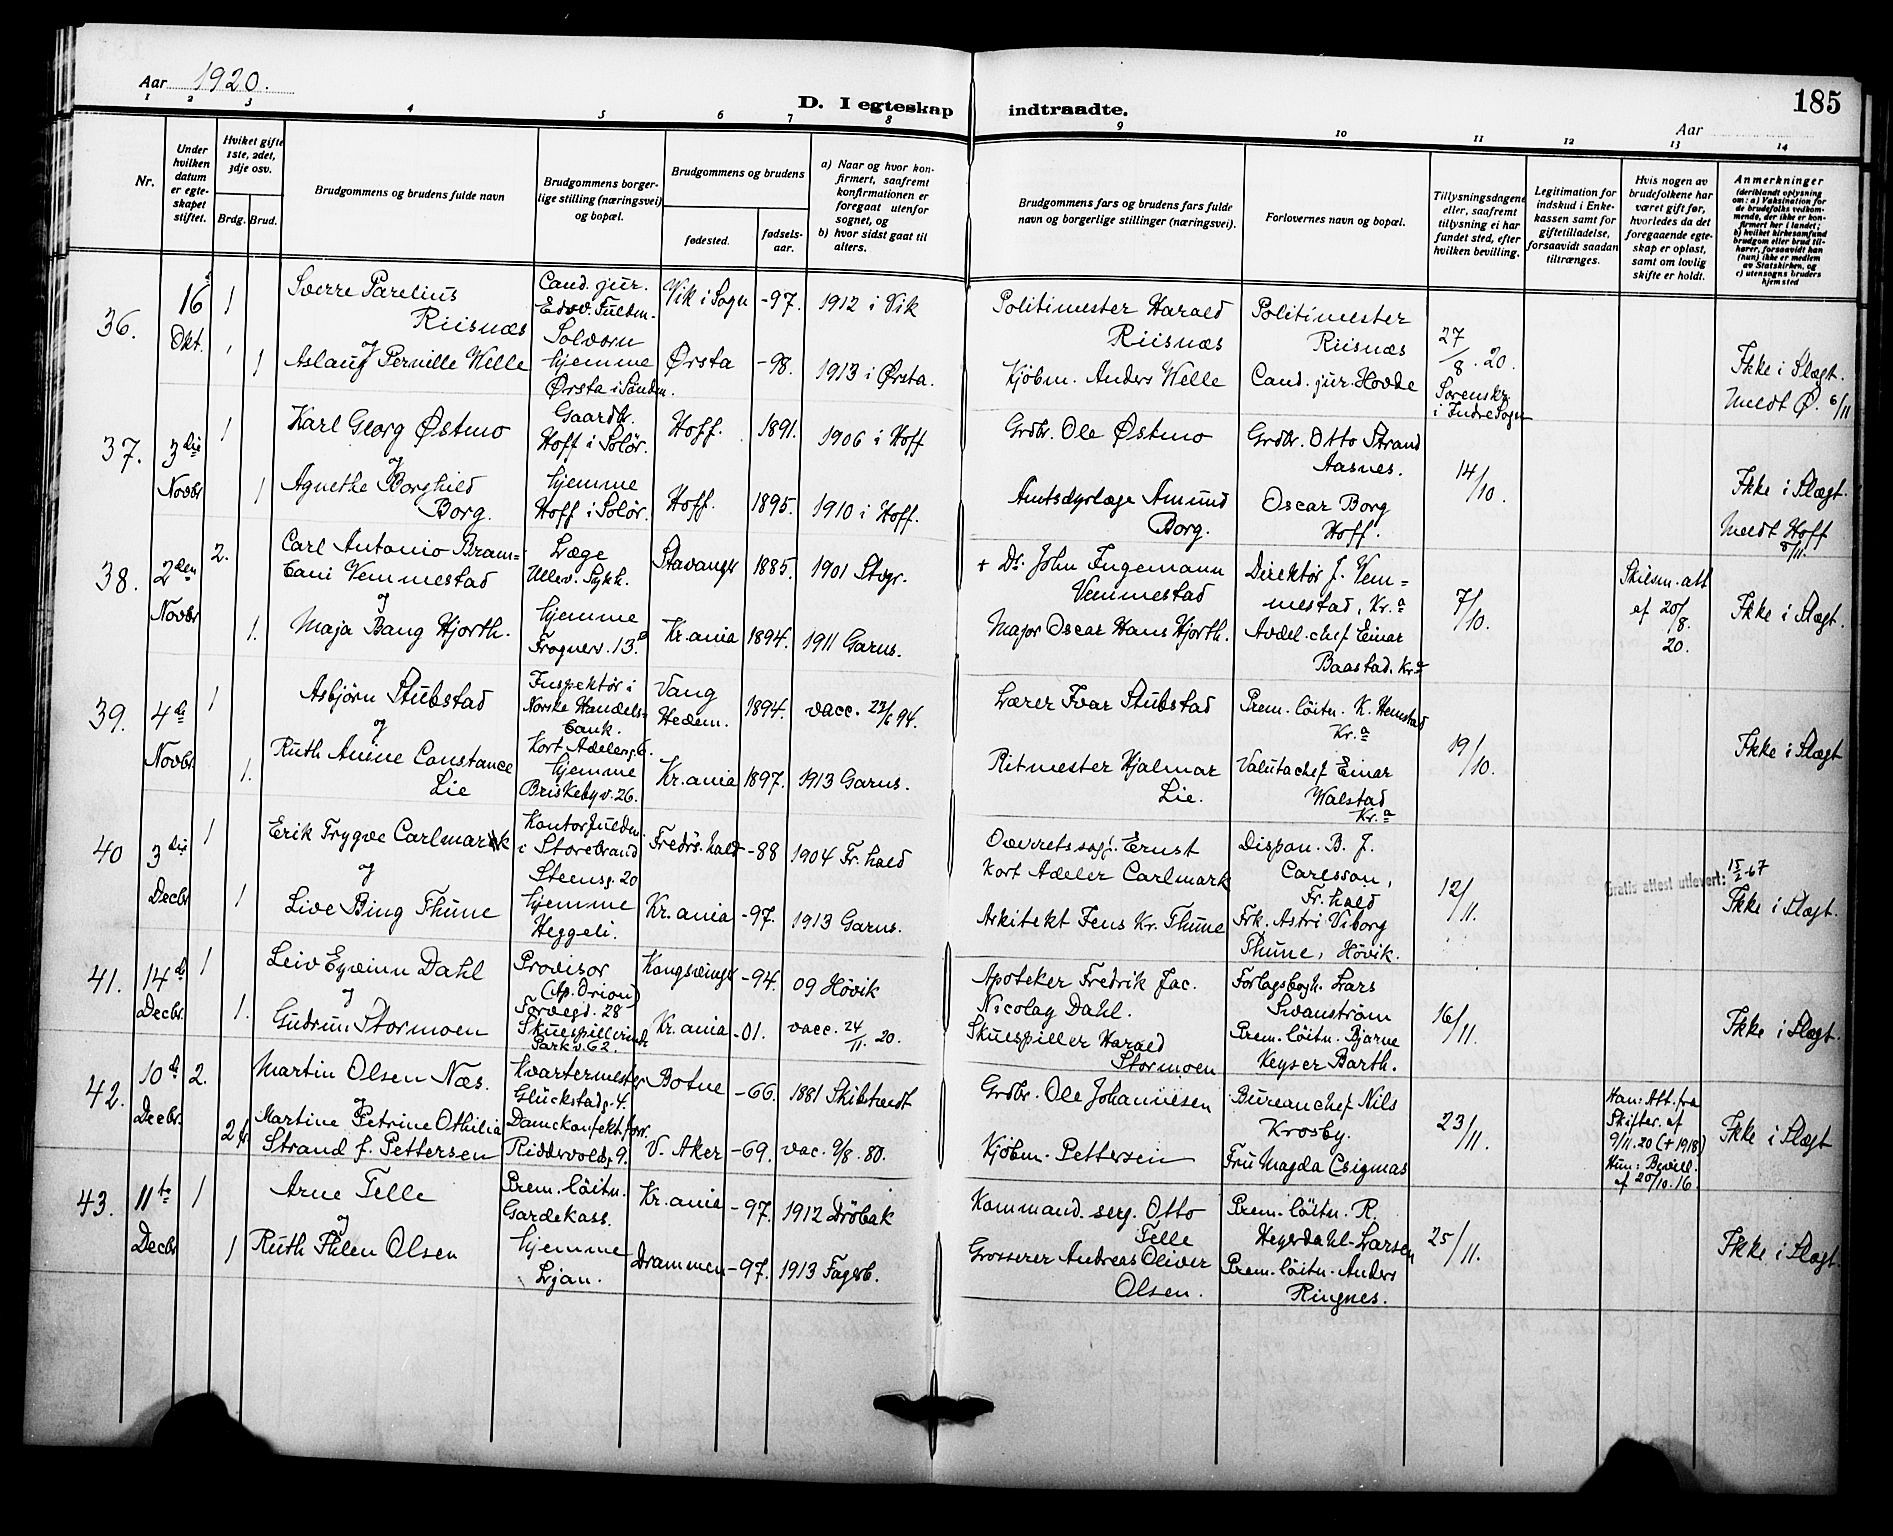 Aar 1920.
D. I egteskap indtraadte.
185
Aar
1 2 3 4 5 6 7 8 9 10 11 12 13 14
Nr.
Under hvilken datum er egteskapet stiftet.
Hvilket gifte 1ste, 2det, 3dje osv.
Brdg. Brud.
Brudgommens og brudens fulde navn
Brudgommens borgerlige stilling (næringsvei) og bopæl.
Brudgommens og brudens
fødested.
fødselsaar.
a) Naar og hvor konfirmert, saafremt konfirmationen er foregaat utenfor sognet, og
b) hvor sidst gaat til alters.
Brudgommens fars og brudens fars fulde navn og borgerlige stillinger (næringsvei).
Forlovernes navn og bopæl.
Tillysningsdagene eller, saafremt tillysning ei har fundet sted, efter hvilken bevilling.
Legitimation for indskud i Enkekassen samt for giftetilladelse, forsaavidt saadan tiltrænges.
Hvis nogen av brudefolkene har været gift før, hvorledes da det foregaaende egteskap er opløst, samt om lovlig skifte er holdt.
Anmerkninger
(deriblandt oplysning om: a) Vaksination for de brudefolks vedkommende, der ikke er konfirmert her i landet; b) hvilket kirkesamfund brudgom eller brud tilhører, forsaavidt han (hun) ikke er medlem av Statskirken, og c) utensogns bruders hjemsted
36. 16 Okt. 1
Sverre Parelius Riisnæs
Cand. jur. Edsv. Fuldm. Solvorn
Vik i Sogn -97. 1912 i Vik
Politimester Harald Riisnæs
Politimester Riisnæs
27/8. 20. Sorenskr. i Indre Sogn
og
1 Aslaug Pernille Welle
hjemme Ørsta i Søndm.
Ørsta -98. 1913 i Ørsta.
Kjøbm. Anders Welle
Cand. jur. Hovde
Ikke i Slægt.
Meldt Ø. 6/11
37. 3die Novbr 1
Karl Georg Østmo
Gaardbr. Hoff i Solør.
Hoff. 1891. 1906 i Hoff
Grdbr. Ole Østmo
Grdbr. Otto Strand Aasnes.
14/10.
og
1 Agnethe Borghild Borg.
hjemme Hoff i Solør.
Hoff. 1895. 1910 i Hoff.
Amtsdyrlæge Amund Borg.
Oscar Borg Hoff.
Ikke i Slægt.
Meldt Hoff 5/11.
38. 2den Novbr 2.
Carl Antonio Bramcani Vemmestad
Læge Ullev. Sykh.
Stavanger 1885. 1901 Stvgr.
+ Dr. John Ingemann Vemmestad
Direktør J. Vemmestad, Kr.a
7/10.
Skilsm. att af 20/8. 20.
og
1. Maja Bang Hjorth.
hjemme Frognerv. 13.b
Kr.ania 1894. 1911 Garns.
Major Oscar Hans Hjorth.
Avdel.chef Einar Baastad. Kr.a
Ikke i Slægt.
39. 4de Novbr. 1
Asbjørn Stubstad
Inspektør i Norske Handelsbank. Kort Adelersg. 6.
Vang Hedem. 1894. vacc. 23/6 94.
Lærer Ivar Stubstad
Prem. løitn. K. Hemstad Kr.a
19/10.
og
1. Ruth Anine Constance Lie
hjemme Briskebyv. 26.
Kr.ania 1897. 1913 Garns.
Ritmester Hjalmar Lie.
Valutachef Einar Walstad Kr.a
Ikke i Slægt
40 3die Decbr 1
Erik Trygve Carlmark
Kontorfuldm. i Storebrand Steensg. 20
Fredrs.hald -88 1904 Fr.hald
Overretssagf. Ernst Kort Adeler Carlmark
Dispon. B. J. Carlsson, Fr.hald
12/11.
Gratis attest utlevert: 15/2-67
og
1 Live Bing Thune
hjemme Heggeli.
Kr.ania -97. 1913 Garns.
Arkitekt Jens Kr. Thune
Frk. Astri Viborg Thune, Høvik.
Ikke i Slægt.
41. 14de Decbr. 1
Leiv Eyvinn Dahl
Provisor (Ap. Orion) Torvegd. 28
Kongsvinger -94. 09 Høvik
Apoteker Fredrik Jac. Nicolay Dahl.
Forlagsbogh. Lars Swanstrøm
16/11.
og
1. Gudrun Stormoen
Skuespillerinde Parkv. 62.
Kr.ania -01. vacc. 24/11. 20.
Skuespiller Harald Stormoen
Prem. løitn. Bjarne Keyser Barth.
Ikke i Slægt.
42. 10de Decbr. 2.
Martin Olsen Næs.
Kvartermester Glückstadg. 4.
Botne -66. 1881 Skibtvedt
Grdbr. Ole Johannesen
Bureauchef Nils Krosby.
23/11.
Han: Att. fra Skifter. af 9/11. 20 (+ 1918)
og
2 Martine Petrine Othilia Strand f. Pettersen
Damekonfekt.forr. Riddervoldg. 9.
V. Aker -69. vac. 9/8. 80.
Kjøbm. Pettersen
Fru Magda Csigmas
Hun: Bevill. af 20/10. 16.
Ikke i Slægt
43. 11te Decbr 1
Arne Telle
Prem. løitn. Gardekass.
Kr.ania -97. 1912 Drøbak
Kommand. serg. Otto Telle
Prem. løitn. R. Heyerdahl-Larsen
25/11.
og
1 Ruth Thlen Olsen
hjemme Ljan.
Drammen -97. 1913 Fagerb.
Grosserer Andreas Oliver Olsen.
Prem. løitn. Anders Ringnes.
Ikke i Slægt.